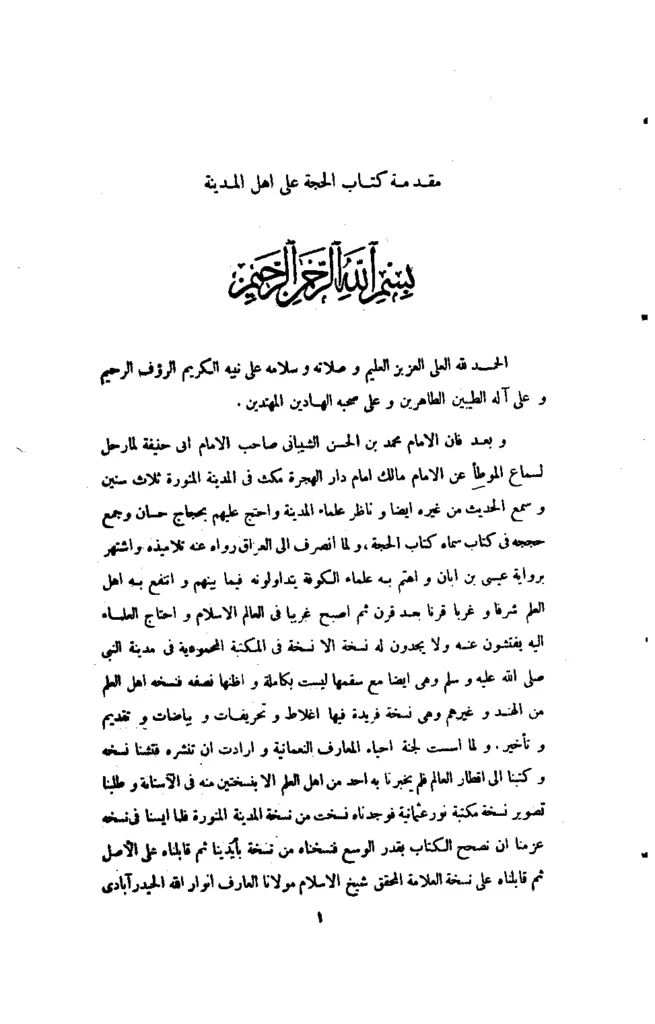 مقدمة كتاب الحجة على اهل المدينة
بسم الله الرحمن الرحيم
الحمد لله العلى العزيز العليم و صلاته و سلامه على نبيه الكريم الرؤف الرحيم
و على آله الطيبين الطاهرين و على صحبه الهادين المهتدين .
و بعد فان الامام محمد بن الحسن الشيبانى صاحب الامام ابى حنيفة لما رحل
لسماع الموطأ عن الامام مالك امام دار الهجرة مكث فى المدينة المنورة ثلاث سنين
و سمع الحديث من غيره ايضا و ناظر علماء المدينة و احتج عليهم بحجاج حسان وجمع
حججه فى كتاب سماه كتاب الحجة، و لما انصرف الى العراق رواه عنه تلاميذه و اشتهر
برواية عيسى بن ابان و اهتم به علماء الكوفة يتداولونه فيما بينهم و انتفع به اهل
العلم شرقا و غربا قرنا بعد قرن ثم اصبح غريبا فى العالم الاسلام و احتاج العلماء
اليه يفتشون عنه ولا يجدون له نسخة الا نسخة فى المكتبة المحمودية فى مدينة النبى
صلى الله عليه و سلم وهى ايضا مع سقمها ليست بكاملة و اظنها نصفه فنسخه اهل العلم
من الهند و غيرهم وهى نسخة فريدة فيها اغلاط و تحريفات و بياضات و تقديم
و تأخير . و لما اسست لجنة احياء المعارف النعمانية و ارادت ان تنشره فتشنا نسخه
و كتبنا الى اقطار العالم فلم يخبرنا به احد من اهل العلم الا بنسختين منه فى الآستانة و طلبنا
تصوير نسخة مكتبة نور عثمانية فوجدناه نسخت من نسخة المدينة المنورة فلما ايسنا فى نسخه
عزمنا ان نصحح الكتاب بقدر الوسع فنسخناه من نسخة بأيدينا ثم قابلناه على الأصل
ثم قابلناه على نسخة العلامة المحقق شيخ الاسلام مولانا العارف انوار الله الحيدرآبادى
١